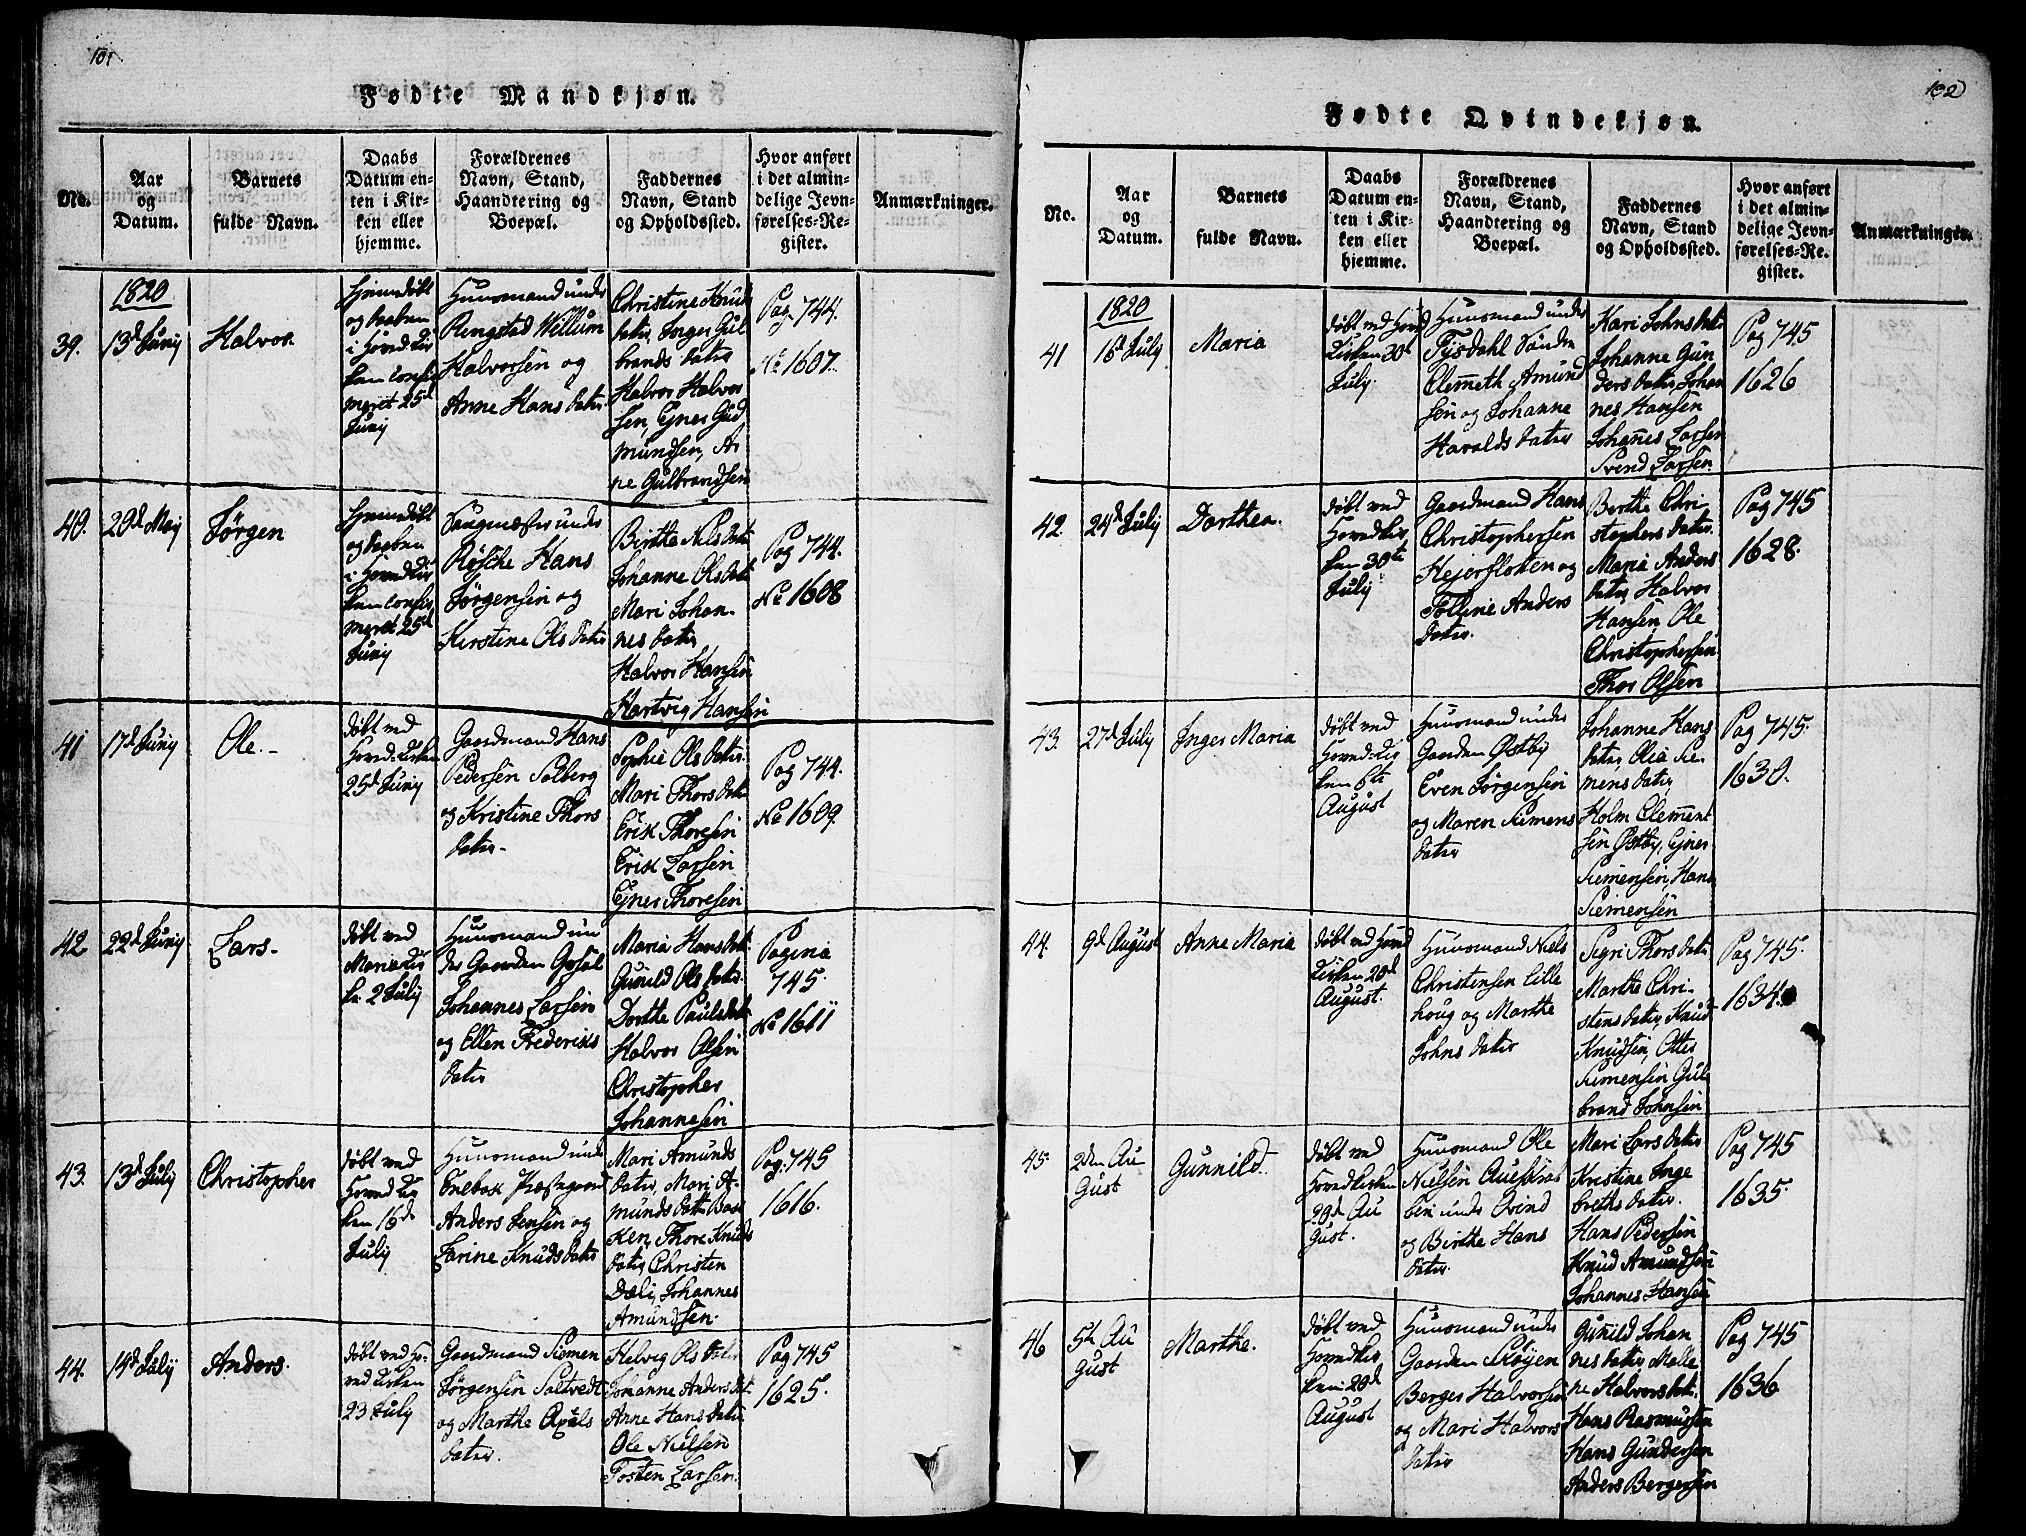 101
Fødte Mandkjøn.
No.
Aar
og
Datum.
Barnets
fulde Navn.
Daabs
Datum en-
ten i Kir-
ken eller
hjemme.
Forældrenes
Navn, Stand,
Haandtering og
Boepæl.
Faddernes
Navn, Stand
og Opholdssted.
Hvor anført
i det almin-
delige Jevn-
førelses-Re-
gister.
Anmærkninger.
1820
39.
13d Junij
Halvor
Hjemmedøbt
og baaren
i Hoved Kir
ken confir
meret 25d
Junij
Huusmand under
Ringstad Willum
Halvorsen og
Anne Hans datter
Christine Knuds
datter, Inger Gul
brands datter
Halvor Halvor
sen, Ejner Gud
mundsen, Ar
ne Gulbrandsen
Pag 744.
No 1607.
40.
20d Maj
Jørgen
Hjemmedøbt
og baaren
i Hoved Kir
ken confir
meret 25d
Junij
Saugmester under
Røsche Hans
Jørgensen og
Kirstine Ols datter
Birthe Nils datt
Johanne Ols datt
Mari Johan-
nes datter
Halvor Hansen
Hartvig Hansen
Pag 744.
No 1608
41
17d Junij
Ole.-
døbt ved
Hoved-Kirken
25d Junij
Gaardmand Hans
Pedersen Solberg
og Kristine Thors
datter-
Sophie Ols datter
Mari Thors datt
Erik Thoresen
Erik Larsen
Ejner Thoresen
Pag 744.
No 1609.
42
22d Junij
Lars-
døbt ved
Mariæ Kir
ke 2 Julij
Huusmand un
der Gaarden
Johannes Larsen
og Ellen Frederiks
datter
Maria Hans datt
Gunild Ols datter
Dorthe Pauls datt
Halvor Olsen
Christopher
Johannesen
Pagina
745.
No 1611
43.
13d Julij
Christopher
døbt ved
Hoved Kir
ken 16d
Julij
Huusmand under
Enebak Præstegaard
Anders Jensen og
Larine Knuds datter
Mari Amunds
datter, Mari A-
munds datt Bas
ken, Thore Knuds
datter, Christen
Dæli, Johannes
Amundsen.
Pag. 745
1616.
44.
14d Julij
Anders.
døbt ved Ho-
ved Kirken
23 Julij
Gaardmand Siemen
Jørgensen Saltvedt
og Marthe Axels
datter.
Helvig Ols datter
Johanne Anders dat.
Anne Hans datter
Ole Nielsen
Tosten Larsen.
Pag 745
1625.
102
Fødte Qvindekjøn.
No.
Aar
og
Datum.
Barnets
fulde Navn.
Daabs
Datum en-
ten i Kir-
ken eller
hjemme.
Forældrenes
Navn, Stand,
Haandtering og
Boepæl.
Faddernes
Navn, Stand
og Opholdssted.
Hvor anført
i det almin-
delige Jevn-
førelses-Re-
gister.
Anmærkninger.
1820
41
16d Julij
Maria
døbt ved Hoved
Kirken 30d
Julij.
Huusmand under
Tysdahl Søndre
Clemeth Amund
sen og Johanne
Haralds datter
Kari Johns datter
Johanne Gun
ders datter, Johan
nes Hansen
Johannes Larsen
Svend Larsen
Pag 745
1626
42.
24d Julij
Dorthea.
døbt ved
Hovedkir
ken 30te
Julij
Gaardmand Hans
Christophersen
Hejerflotten og
Tolline Anders
datter.
Berthe Chri-
stophers datter.
Maria Anders
datter, Halvor
Hansen, Ole
Christophersen
Thor Olsen
Pag 745
1628.
43.
27d Julij
Inger Maria
døbt ved
Hoved-Kir
ken 6te
August
Huusmand under
Gaarden Østby
Even Jørgensen
og Maren Siemens
datter
Johanne Hans
datter, Olia Sie-
mens datter,
Holm Clement
sen Østby, Ejner
Siemensen, Hans
Siemensen
Pag 745.
1630.
44.
9d August
Anne Maria
døbt ved Hoved
Kirken 20d
August.
Huusmand Niels
Christensen Lille
houg og Marthe
Johns datter
Sigri Thors datter
Marthe Chri-
stens datter, Knud
Knudsen, Otter
Siemensen Gul
brand Johnsen
Pag 745.
1634.
45.
2den Au
gust
Gunnild.
døbt ved
Hovedkirken
20d Au
gust.
Huusmand Ole
Nielsen
under Qvind
og Birthe Hans
datter.
Mari Lars datter
Kristine Inge
breths datter.
Hans Pedersen
Knud Amundsen
Johannes Hansen
Pag 745
1635.
46
5te Au
gust
Marthe.
døbt ved
Hovedkir
ken 20d
August
Huusmand under
Gaarden Skøyen
Berger Halvorsen
og Mari Halvors
datter
Gunild Johan
nes datter, Malle
ne Halvors datt.
Hans Rasmussen
Hans Gundersen
Anders Bergersen
Pag 745
1636